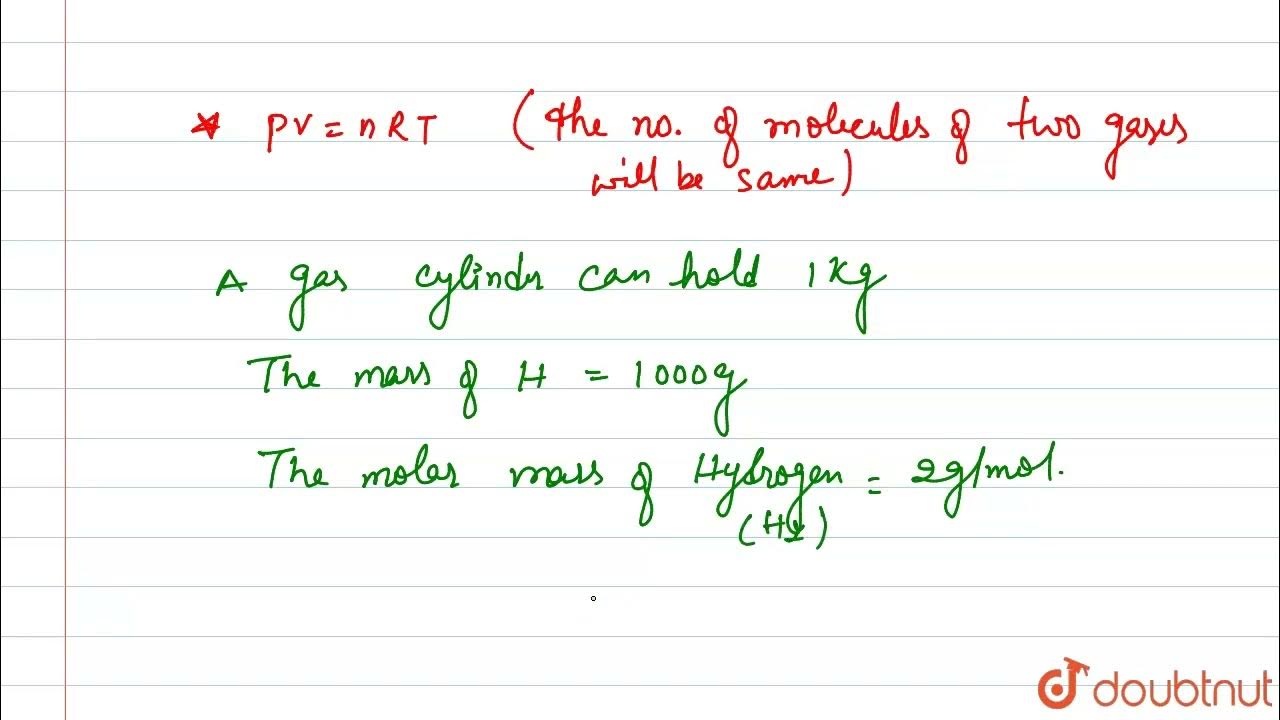 * PV = nRT (the no. of molecules of two gases
will be same)
A gas cylinder can hold 1 Kg
The mass of H = 1000g
The molar mass of Hydrogen = 2g/mol.
(H2)
doubtnut